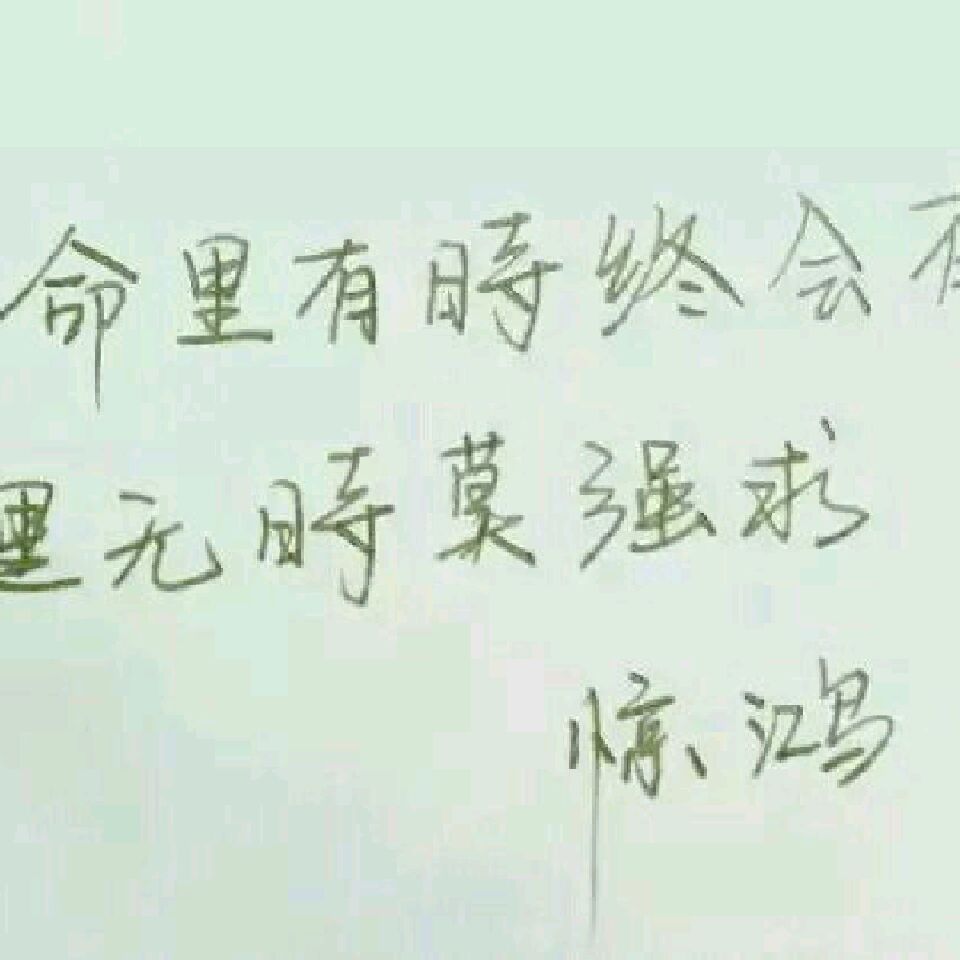 命里有時终会有
里无時莫强求
惊鸿